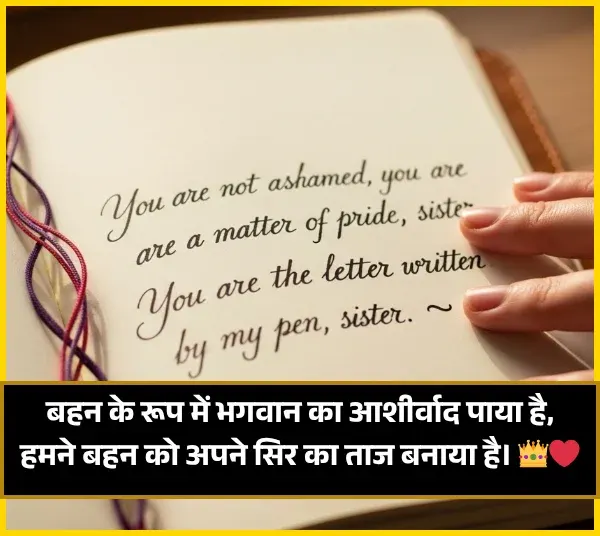 You are not ashamed, you are
are a matter of pride, sister
You are the letter written
by my pen, sister. ~
बहन के रूप में भगवान का आशीर्वाद पाया है,
हमने बहन को अपने सिर का ताज बनाया है। 👑❤️